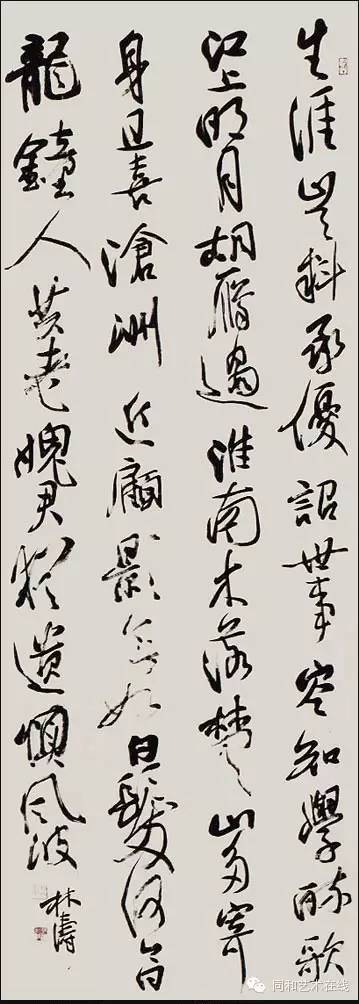 生涯豈料承優詔世事空知學醉歌
江上明月胡雁過淮南木落楚山多寄
身且喜滄洲近顧影無如白髮何今日
龍鐘人共老愧君猶遣慎風波
林濤
同和艺术在线